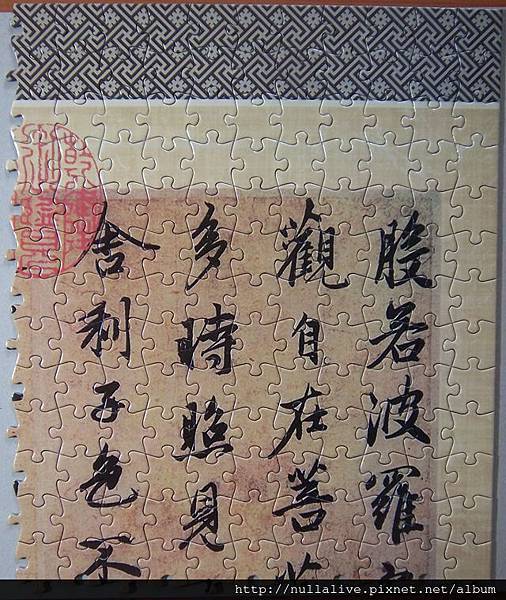 般若波羅
觀自在菩薩
多時照見
舍利子色不
http://nullalive.pixnet.net/album